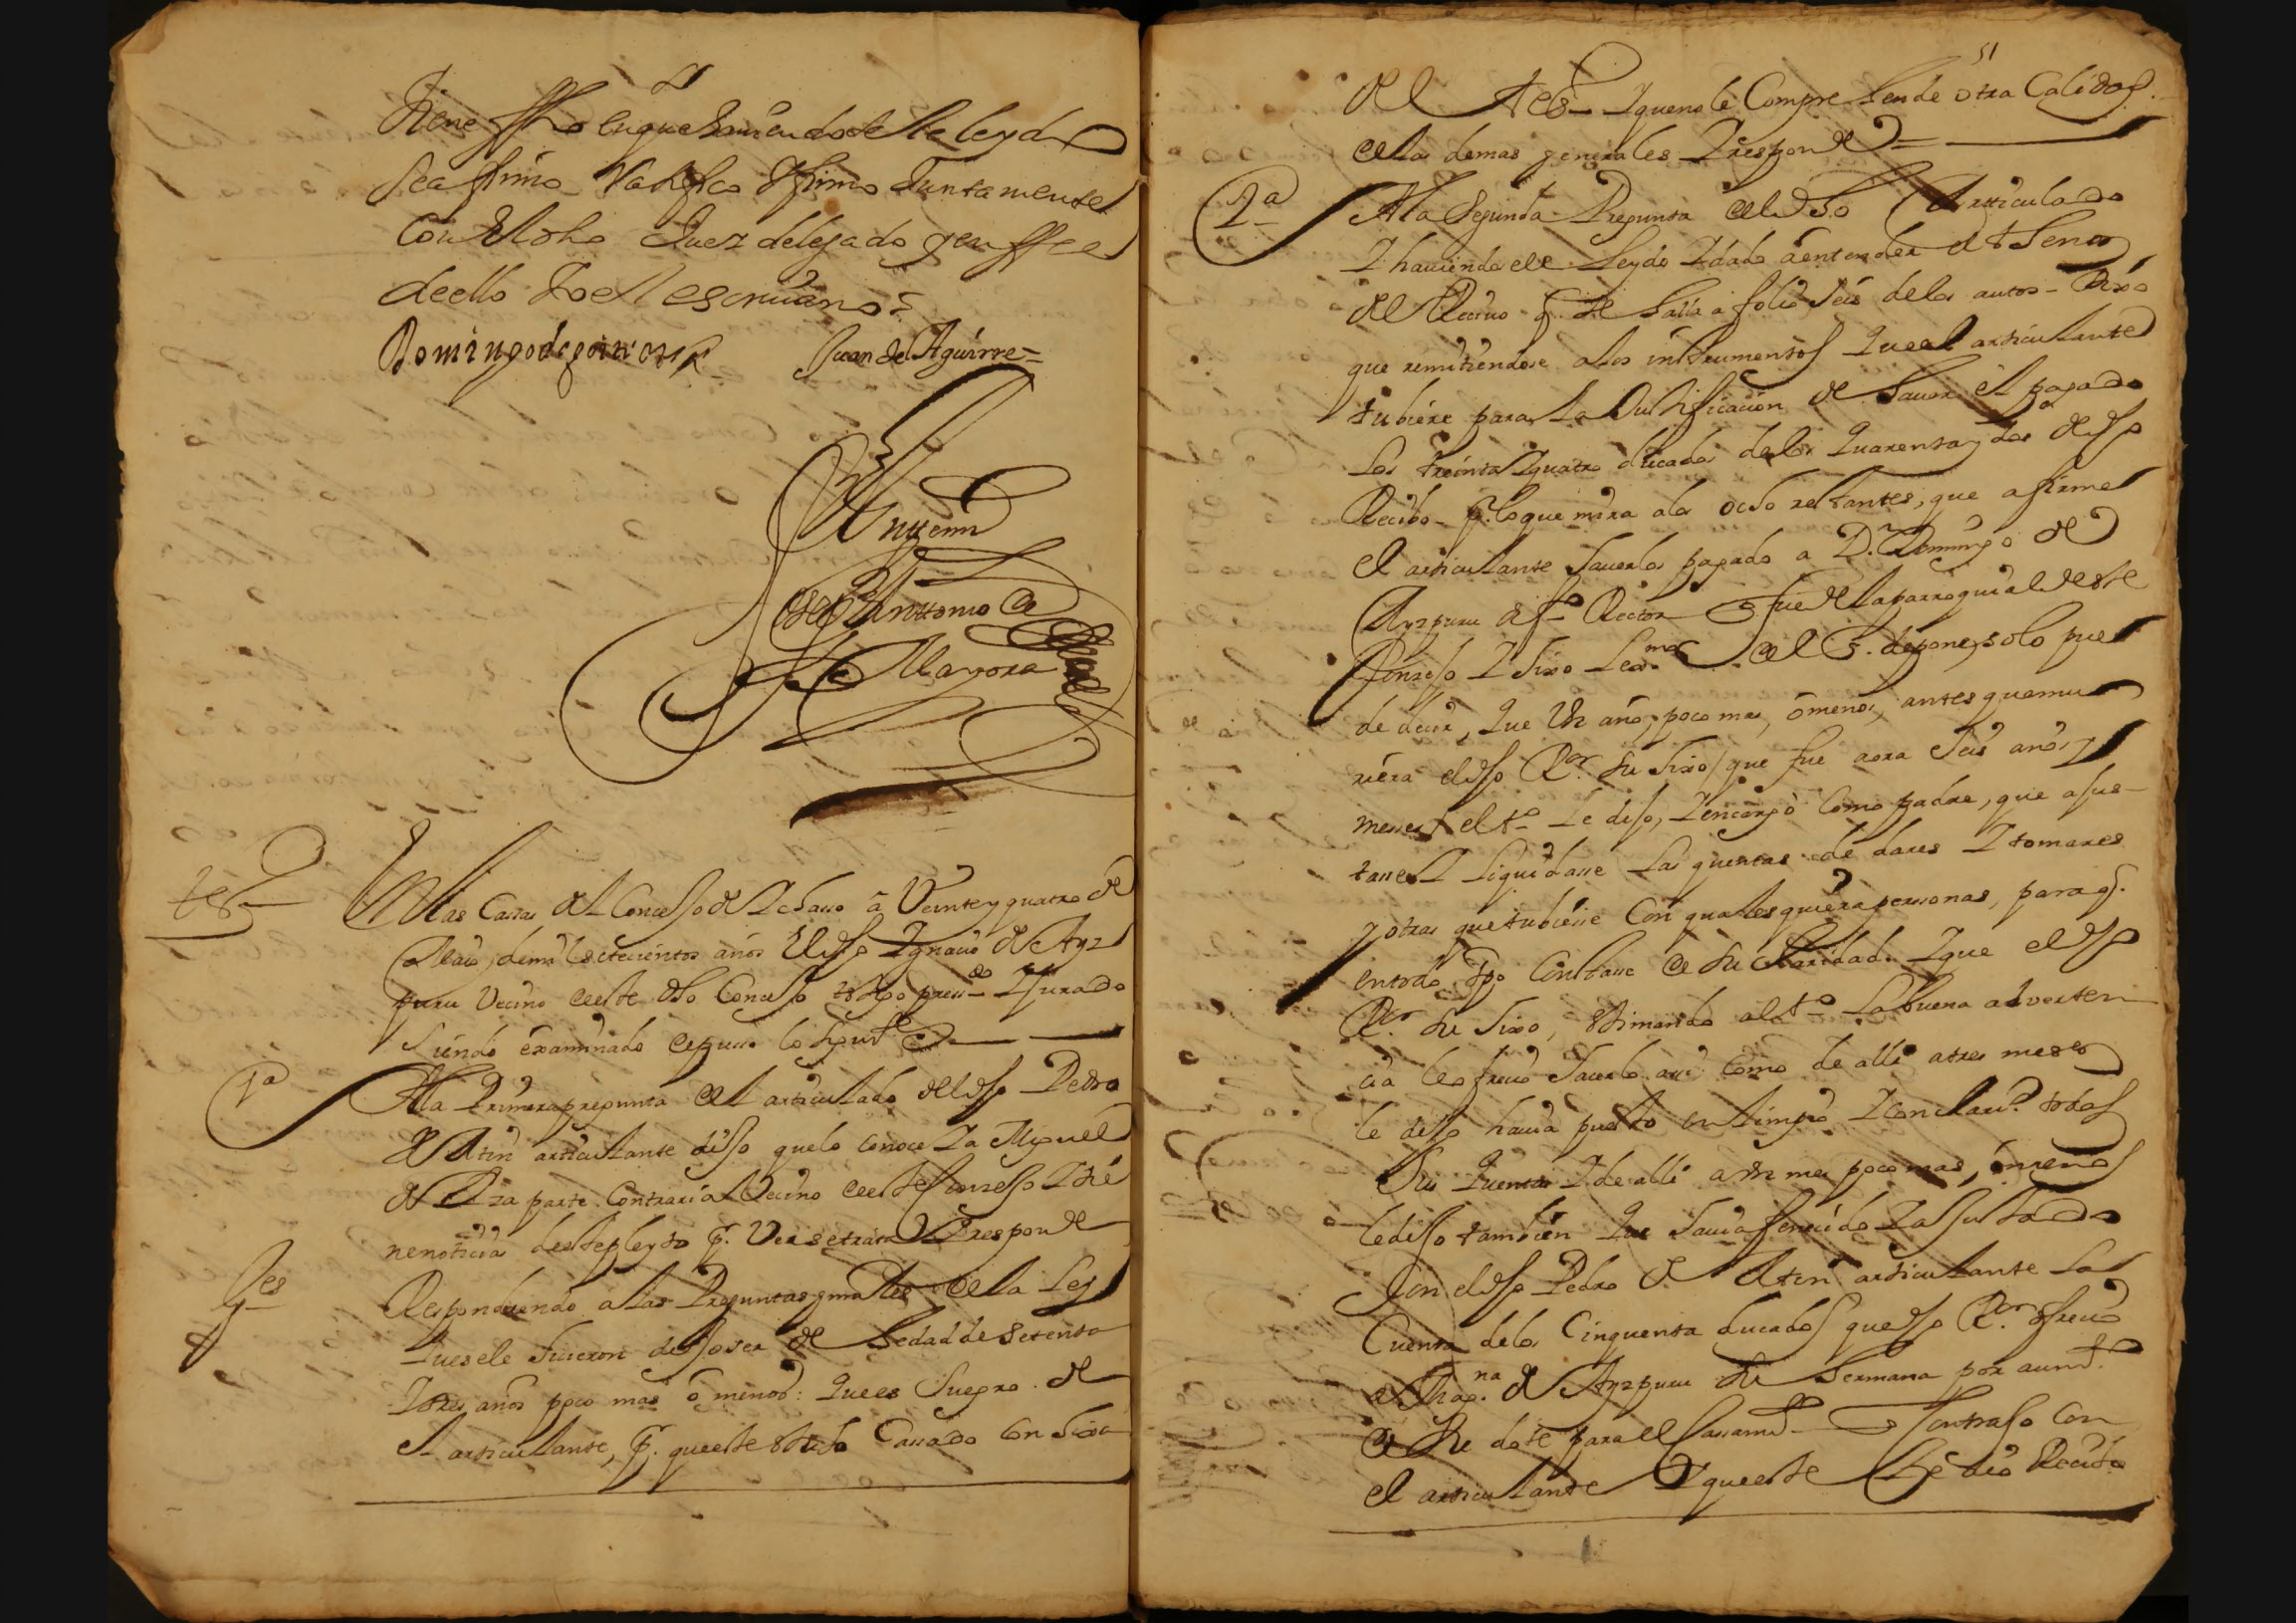 tiene ffho en que haviendosele leydo
se affirmo Ratifico y firmo Juntamente
Con el dho Juez delegado y en ffee
de ello Yo el escrivano
Domingo de goiri
Juan de Aguirre
Ante mi
Joseph Antonio de
Mayora
tesº
En las Casas del Concejo de Ichaso a Veinte y quatro de
Mayo de mil setecientos años el dho Ygnacio de Ayz
puru Vecino de este dho Concejo testigo presdo Y Jurado
siendo examinado depuso lo siguite
1ª
A la Primera pregunta del articulado del dho Pedro
de Atin articulante dijo que lo conoce Y a Miguel
de Aza parte Contraria Vecino de este Conzejo Y tie
ne noticia deste pleyto q. Versetrata Y responde
ges
Respondiendo a las Preguntas gnrales de la Ley
que se le hicieron dijo ser de hedad de setenta
Y tres años poco mas o menos: que es suegro de
el articulante, p. que este esta Casado con hixa
51
del tesº Y que no le Compre hende otra Calidad
de las demas generales Y responde
2ª
A la Segunda Pregunta del dho Articulado
Y haviendosele leydo Y dado a entender el thenor
del Recivo q. se halla a folio seis de los autos Dixo
que remitiendose a los instrumentos que el articulante
tubiere para la Justificacion de haver el pagado
los treinta Y quatro ducados de los quarenta y dos de dho
Recibo p. lo que mira a los ocho restantes, que afirma
el articulante haverlos pagado a D. Domingo de
Ayzpuru dfº Rector que fue de la parroquial de este
Conzejo Y hixo lexmo del tº. depone solo pue
de decir, que Un año, poco mas, o menos, antes que mu
riera el dho Ror. su hixo / que fue aora seis años, y
meses / el tº le dijo, Y encargo Como padre, que ajus
tase Y liquidase las quentas de dares Y tomares
y otras que tubiese Con qualesquiera personas, para q.
en todo tpo Constase de su Claridad. Y que el dho
Ror. su hixo, estimando al tº la buena adverten
cia le ofrecio hacerlo asi Como de alli a tres meses
le dijo havia puesto en limpio Y con claridd. todas
sus quentas Y de alli a un mes poco mas, o menos
le dijo tambien que havia fenecido Y ajustado
Con el dho Pedro de Atin articulante la
Cuenta de los Cinquenta ducados que dho Ror. ofrecio
a Mag.na de Ayzpuru su hermana por aumto.
de su dote para el Casamto que Contrajo Con
el articulante Y que este le dio Recibo